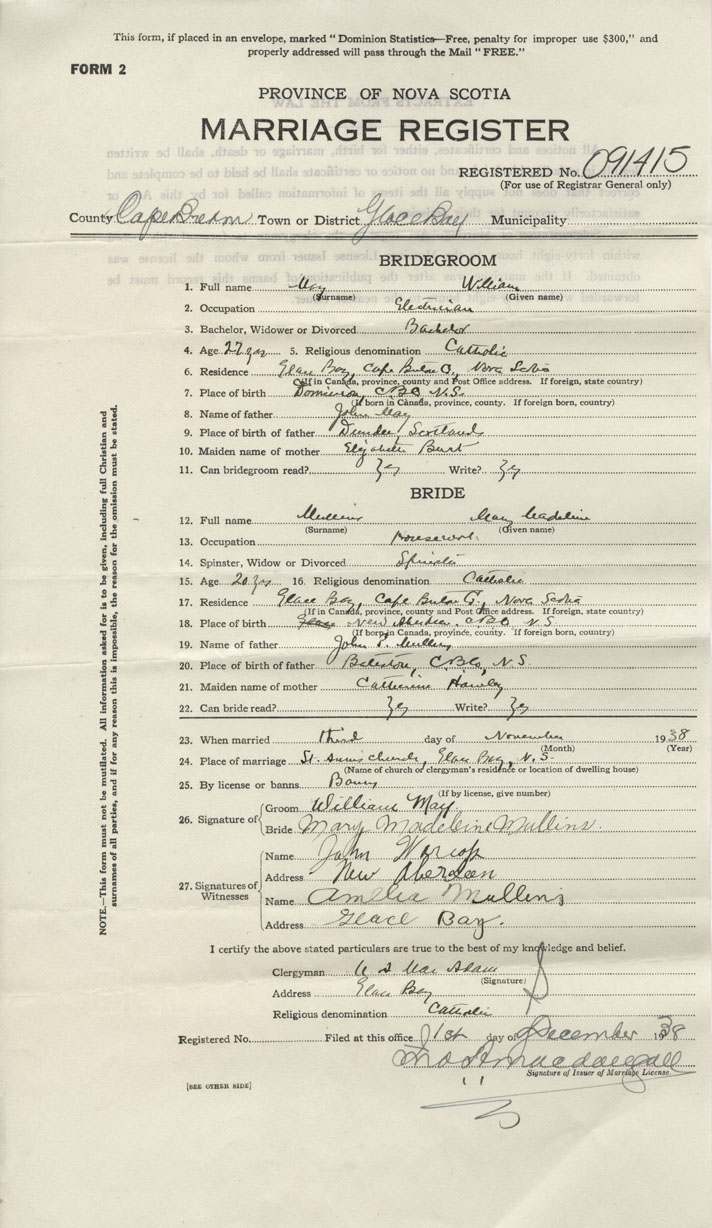 This form, if placed in an envelope, marked "Dominion Statistics—Free, penalty for improper use $300," and
properly addressed will pass through the Mail "FREE."
FORM 2
PROVINCE OF NOVA SCOTIA
MARRIAGE REGISTER
REGISTERED No. 091415
(For use of Registrar General only)
County Cape Breton Town or District Glace Bay Municipality
BRIDEGROOM
1. Full name May William
(Surname) (Given name)
2. Occupation Electrician
3. Bachelor, Widower or Divorced Bachelor
4. Age 27 yrs 5. Religious denomination Catholic
6. Residence Glace Bay, Cape Breton Co., Nova Scotia
(If in Canada, province, county and Post Office address. If foreign, state country)
7. Place of birth Dominion, C.B.Co N.S.
(If born in Canada, province, county. If foreign born, country)
8. Name of father John May
9. Place of birth of father Dundee, Scotland
10. Maiden name of mother Elizabeth Burt
11. Can bridegroom read? Yes Write? Yes
BRIDE
12. Full name Mullins Mary Madeline
(Surname) (Given name)
13. Occupation Housework
14. Spinster, Widow or Divorced Spinster
15. Age 20 yrs 16. Religious denomination Catholic
17. Residence Glace Bay, Cape Breton Co., Nova Scotia
(If in Canada, province, county and Post Office address. If foreign, state country)
18. Place of birth Glace New Aberdeen, C.B.Co N.S.
(If born in Canada, province, county. If foreign born, country)
19. Name of father John P. Mullins
20. Place of birth of father Bateston, C.B.Co, N.S.
21. Maiden name of mother Catherine Hawley
22. Can bride read? Yes Write? Yes
23. When married third day of November 1938
(Month) (Year)
24. Place of marriage St. Anns church, Glace Bay, N.S.
(Name of church or clergyman's residence or location of dwelling house)
25. By license or banns Banns
(If by license, give number)
26. Signature of Groom William May.
Bride Mary Madeline Mullins.
27. Signatures of Witnesses
Name John Worcop
Address New Aberdeen
Name Amelia Mullins
Address Glace Bay.
I certify the above stated particulars are true to the best of my knowledge and belief.
Clergyman MacAdam
(Signature)
Address Glace Bay
Religious denomination Catholic
Registered No. Filed at this office 1st day of December 1938
MacDougall
Signature of Issuer of Marriage License
[SEE OTHER SIDE]
NOTE.—This form must not be mutilated. All information asked for is to be given, including full Christian and
surnames of all parties, and if for any reason this is impossible, the reason for the omission must be stated.